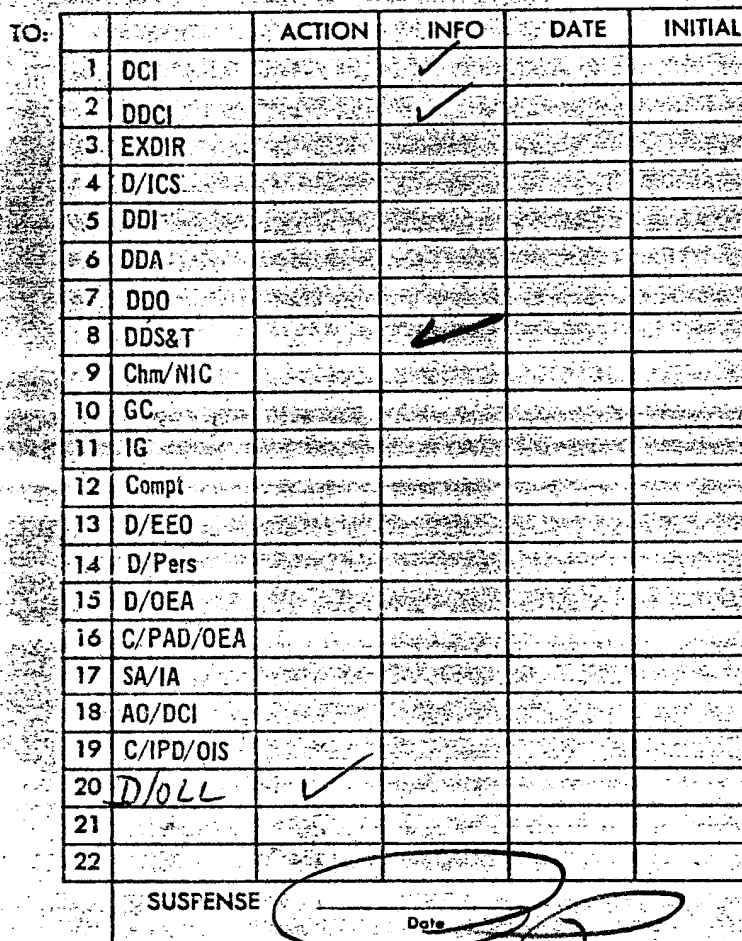 TO: ACTION INFO DATE INITIAL
1 DCI ✓
2 DDCI ✓
3 EXDIR
4 D/ICS
5 DDI
6 DDA
7 DDO
8 DDS&T ✓
9 Chm/NIC
10 GC
11 IG
12 Compt
13 D/EEO
14 D/Pers
15 D/OEA
16 C/PAD/OEA
17 SA/IA
18 AO/DCI
19 C/IPD/OIS
20 D/OLL ✓
21
22
SUSPENSE
Date